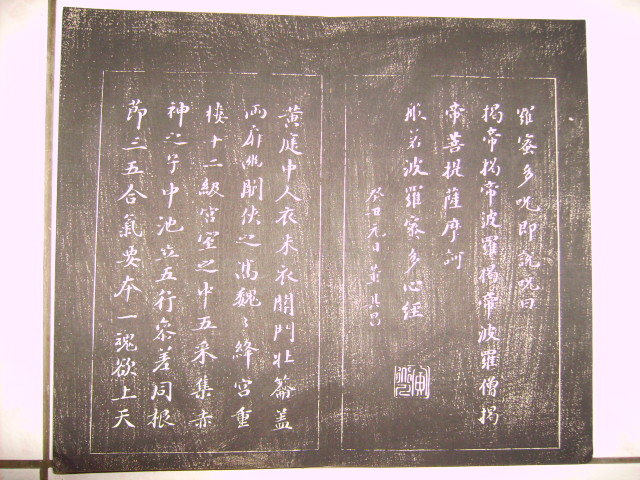 羅蜜多呪即說呪曰
揭帝揭帝波羅揭帝波羅僧揭
帝菩提薩摩訶
般若波羅蜜多心經
癸丑元日董其昌
黃庭中人衣朱衣關門壯籥蓋
兩扉幽闕俠之高魏〻絳宮重
樓十二級宮室之中五采集赤
神之子中池立五行參差同根
節三五合氣要本一魂欲上天